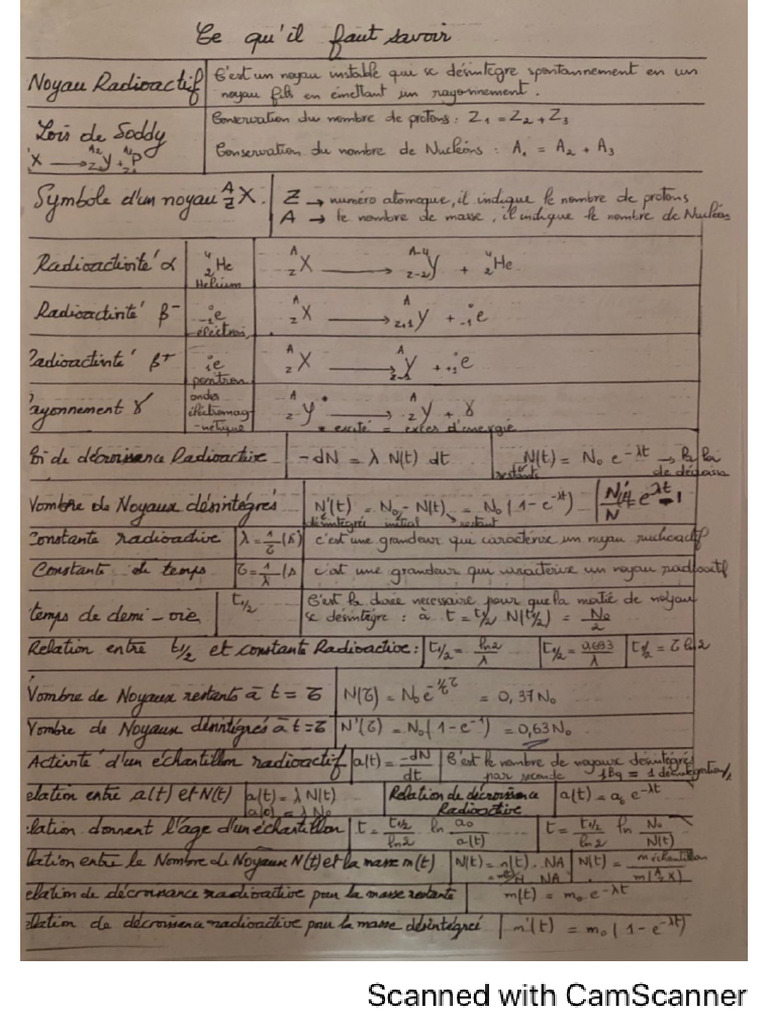 Ce qu'il faut savoir
Noyau Radioactif | C'est un noyau instable qui se désintègre spontannement en un
noyau fils en émettant un rayonnement.
Lois de Soddy | Conservation du nombre de protons : Z₁ = Z₂ + Z₃
X → ᴬ²Y + P | Conservation du nombre de Nucléons : A₁ = A₂ + A₃
Symbole d'un noyau ᴬ_Z X. | Z → numéro atomaque, il indique le nombre de protons
A → le nombre de masse, il indique le nombre de Nucléons
Radioactivité α | ⁴₂He Helium | ᴬ_Z X → ᴬ⁻⁴_Z₋₂ Y + ⁴₂He
Radioactivité β⁻ | ⁰₋₁e électron, | ᴬ_Z X → ᴬ_Z₊₁ Y + ⁰₋₁e
Radioactivité β⁺ | ⁰₁e positron | ᴬ_Z X → ᴬ_Z₋₁ Y + ⁰₊₁e
ayonnement γ | ondes électromag-nétique | ᴬ_Z Y* → ᴬ_Z Y + γ
* excité = excès d'énergie
Loi de décroissance Radioactive | -dN = λ N(t) dt | N(t) = N₀ e^-λt → la loi
restants de décroiss
Nombre de Noyaux désintégrés | N'(t) = N₀ - N(t) = N₀ (1 - e^-λt) | N'(t)/N = e^λt - 1
désintégrés initial restant
Constante radioactive | λ = 1/τ (s) | c'est une grandeur qui caractérise un noyau radioactif
Constante de temps | τ = 1/λ (s | c'est une grandeur qui caractérise un noyau radioactif
temps de demi-vie | t1/2 | C'est la durée necessaire pour que la moitié de noyau
se désintègre : à t = t1/2 N(t1/2) = N₀/2
Relation entre t1/2 et constante Radioactive : | t1/2 = ln2/λ | t1/2 = 0,693/λ | t1/2 = τ ln2
Nombre de Noyaux restants à t = τ | N(τ) = N₀ e^-1/τ τ = 0,37 N₀
Nombre de Noyaux désintégrés à t = τ | N'(τ) = N₀ (1 - e⁻¹) = 0,63 N₀
Activité d'un échantillon radioactif | a(t) = -dN/dt | C'est le nombre de noyaux désintégrés
par seconde 1Bq = 1 désintégration/s
elation entre a(t) et N(t) | a(t) = λ N(t) | Relation de décroissance | a(t) = a₀ e^-λt
a(0) = λ N₀ Radioactive
elation donnent l'âge d'un échantillon | t = t1/2/ln2 ln a₀/a(t) | t = t1/2/ln2 ln N₀/N(t)
lation entre le Nombre de Noyaux N(t) et la masse m(t) | N(t) = n(t) . NA | N(t) = m échantillon/m(ᴬ_Z X)
elation de décroissance radioactive pour la masse restante | m(t) = m₀ e^-λt
elation de décroissance radioactive pour la masse désintégrei | m'(t) = m₀ (1 - e^-λt)
Scanned with CamScanner